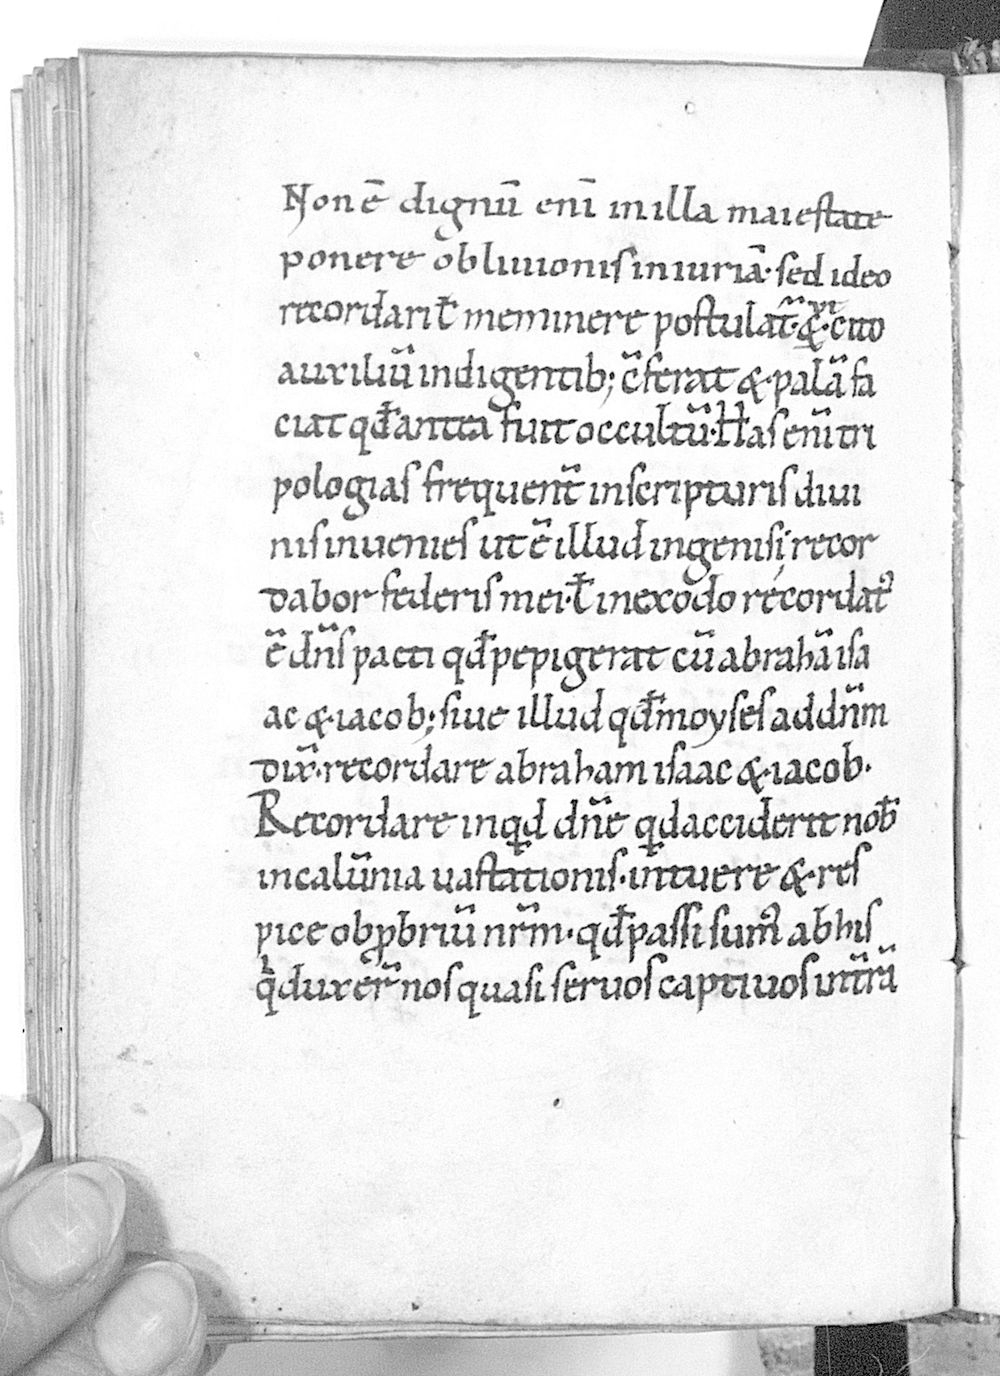 Non ē dignū enī in illa maiestate
ponere obliuionis iniuriā· sed ideo
recordari ł meminere postulat̄· & cito
auxiliū indigentib; c̄ferat & palā fa
ciat qđ antea fuit occultū· has enī tri
pologias frequent̄ in scripturis diui
nis inuenies ut ē illud in genisi; recor
dabor federis mei· ł in exodo recordat᾽
ē dn̄s pacti qđ pepigerat cū abrahā isa
ac & iacob; siue illud qđ moyses ad dn̄m
dix̄· recordare abraham isaac & iacob·
Recordare inqđ dn̄e qđ acciderit nob̄
in calūnia uastationis· intuere & res
pice obꝓbriū nr̄m· qđ passi sum᾽ ab his
q̇ duxer̄ nos quasi seruos captiuos in tr̄ā